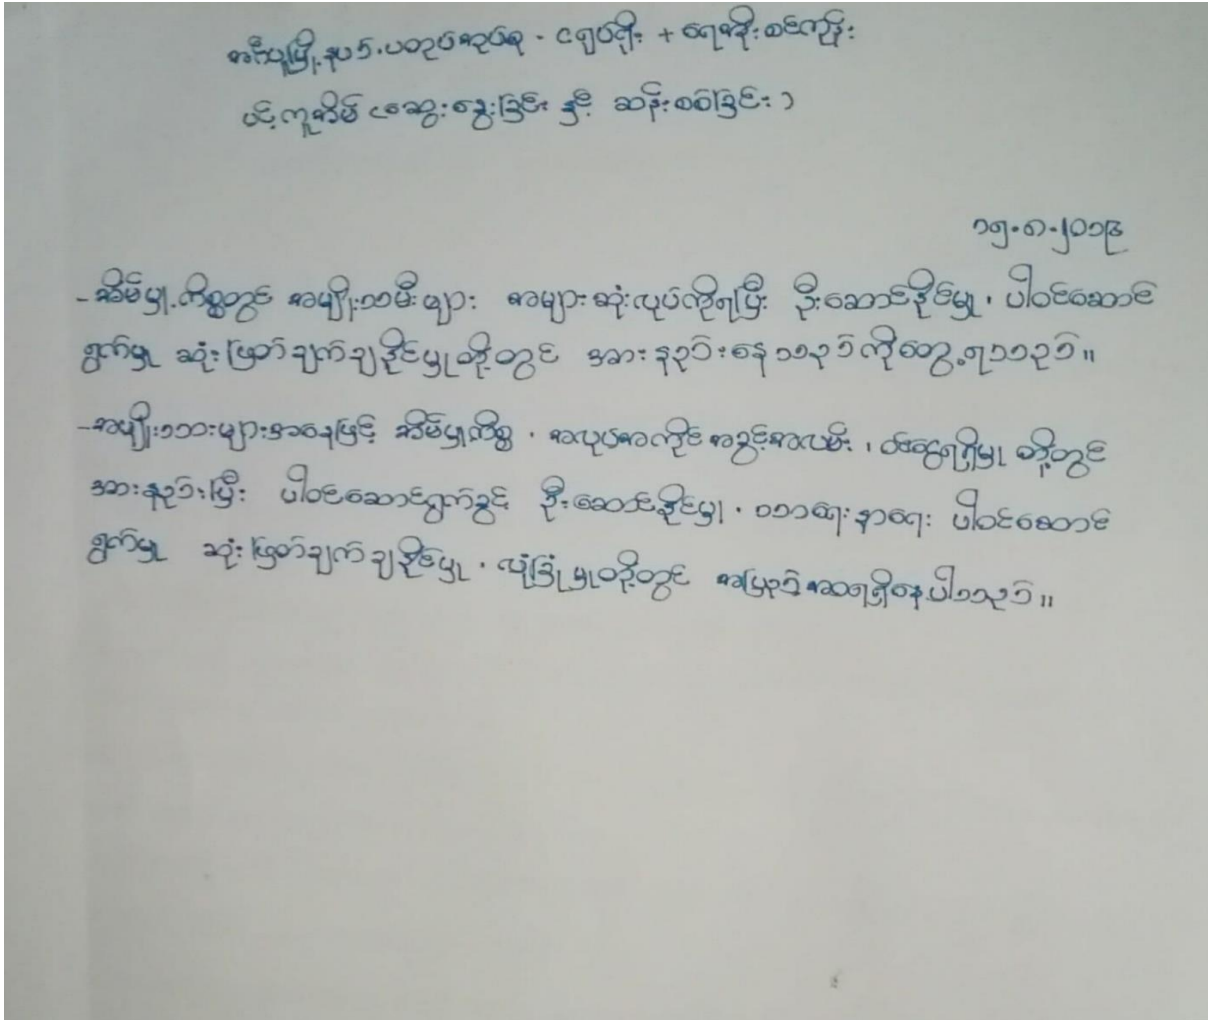 အင်္ဂပူမြို့နယ်. ပတုပ်အုပ်စု. ငရုပ်ရိုး + ရေအိုးစင်ကုန်း
ပင့်ကူအိမ် (ဆွေးနွေးခြင်း နှင့် ဆန်းစစ်ခြင်း)
၁၅.၈.၂၀၁၉
-အိမ်မှု.ကိစ္စတွင် အမျိုးသမီးများ အများဆုံးလုပ်ကိုရပြီး ဦးဆောင်နိုင်မှု၊ ပါဝင်ဆောင်
ရွက်မှု ဆုံးဖြတ်ချက်ချနိုင်မှုတို့တွင် အားနည်းနေသည်ကိုတွေ့ရသည်။
-အမျိုးသားများအနေဖြင့် အိမ်မှုကိစ္စ၊ အလုပ်အကိုင်အခွင့်အလမ်း၊ ဝင်ငွေရရှိမှု တို့တွင်
အားနည်းပြီး ပါဝင်ဆောင်ရွက်ခွင့် ဦးဆောင်နိုင်မှု၊ ဝသာရေးနာရေး ပါဝင်ဆောင်
ရွက်မှု ဆုံးဖြတ်ချက်ချနိုင်မှု၊ လုံခြုံမှုတို့တွင် အပြည့်အဝရရှိနေပါသည်။